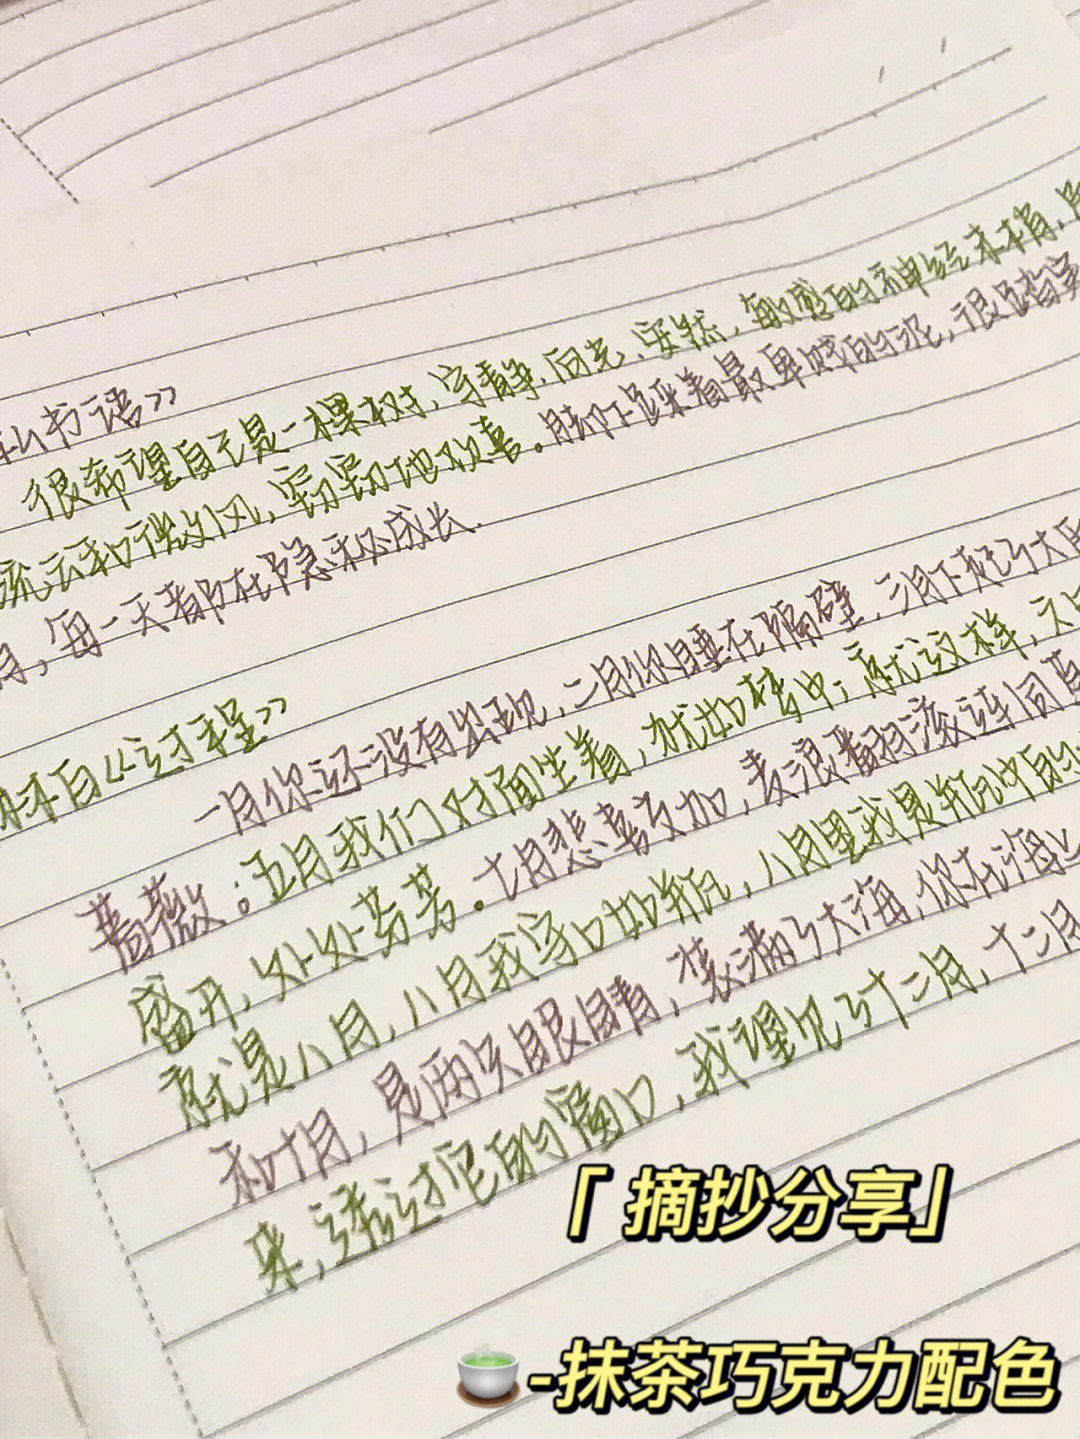 私书语》
很希望自己是一棵树,守静、向光、安然,敏感的神经末梢,
流云和微风,窃窃地欢喜。脚下踩着最卑贱的泥,很踏实
月,每一天都在隐秘成长.
《过程》
一月你还没有出现,二月你睡在隔壁,三月下起了大
蔷薇;五月我们对面坐着,犹如梦中;就这样,六
盛开,处处芬芳。七月悲喜交加,麦浪翻滚连同
就是八月,八月我守口如瓶,八月里我是瓶中的
和十月,是两只眼睛,装满了大海,你在海上
来,透过它的窗口,我望见了十二月,十二月
「摘抄分享」
-抹茶巧克力配色